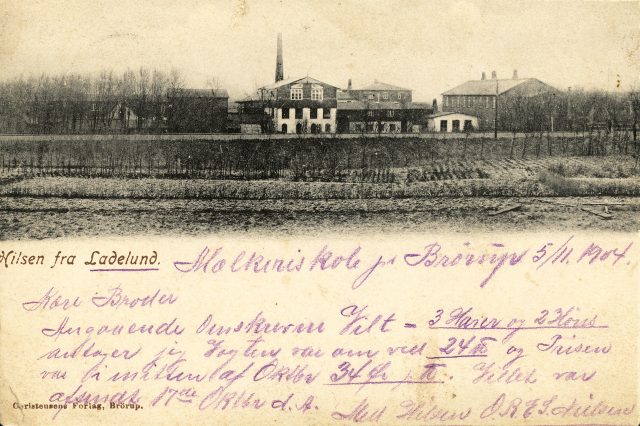 Hilsen fra Ladelund. Mælkeriskole pr Brörup 5/11. 1904.
Kære Broder
Angaaende Omskrevne Vildt = 3 Harer og 2 Höns
antager jeg Vægten var om ved 24 ℔ og Prisen
var i midten af Oktbr 34 Ør pr ℔. Vildt var
afsendt 17de Oktbr d. A. Med Hilsen O.R.E.S. Nielsen
Christensens Forlag, Brörup.